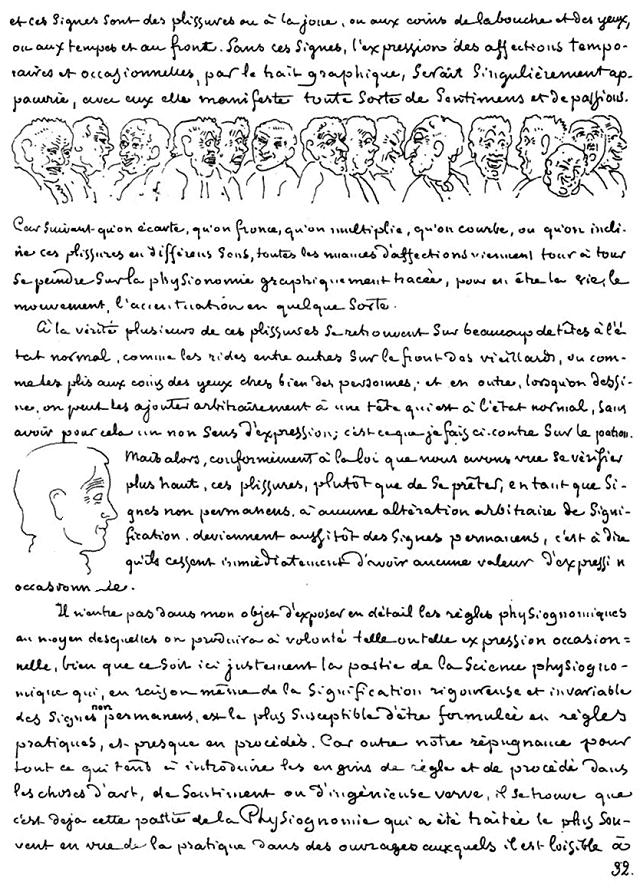 et ces signes sont des plissures ou à la joue, ou aux coins de la bouche et des yeux,
ou aux tempes et au front. Sans ces signes, l'expression des affections tempo-
raires et occasionnelles, par le trait graphique, serait singulièrement ap-
pauvrie, avec eux elle manifeste toute sorte de sentimens et de passions.
Car suivant qu'on écarte, qu'on fronce, qu'on multiplie, qu'on courbe, ou qu'on incli-
ne ces plissures en différens sens, toutes les nuances d'affections viennent tour à tour
se peindre sur la physionomie graphiquement tracée, pour en être la vie, le
mouvement, l'accentuation en quelque sorte.
À la vérité plusieurs de ces plissures se retrouvent sur beaucoup de têtes à l'é-
tat normal, comme les rides entre autres sur le front des vieillards, ou com-
me les plis aux coins des yeux chez bien des personnes; et en outre, lorsqu'on dessi-
ne, on peut les ajouter arbitrairement à une tête qui est à l'état normal, sans
avoir pour cela un non sens d'expression; c'est ce que je fais ci-contre sur le patron.
Mais alors, conformément à la loi que nous avons vue se vérifier
plus haut, ces plissures, plutôt que de se prêter, en tant que si-
gnes non permanens, à aucune altération arbitraire de signi-
fication, deviennent aussitôt des signes permanens, c'est à dire
qu'ils cessent immédiatement d'avoir aucune valeur d'expressi n
occasionn le.
Il n'entre pas dans mon objet d'exposer en détail les règles physiognomiques
au moyen desquelles on produira à volonté telle ou telle expression occasion=
nelle, bien que ce soit ici justement la partie de la science physiogno-
mique qui, en raison même de la signification rigoureuse et invariable
des signes non permanens, est la plus susceptible d'être formulée en règles
pratiques, et presque en procédés. Car outre notre répugnance pour
tout ce qui tend à introduire les engins de règle et de procédé dans
les choses d'art, de sentiment ou d'ingénieuse verve, il se trouve que
c'est déjà cette partie de la Physiognomie qui a été traitée le plus sou-
vent en vue de la pratique dans des ouvrages auxquels il est loisible à
32.